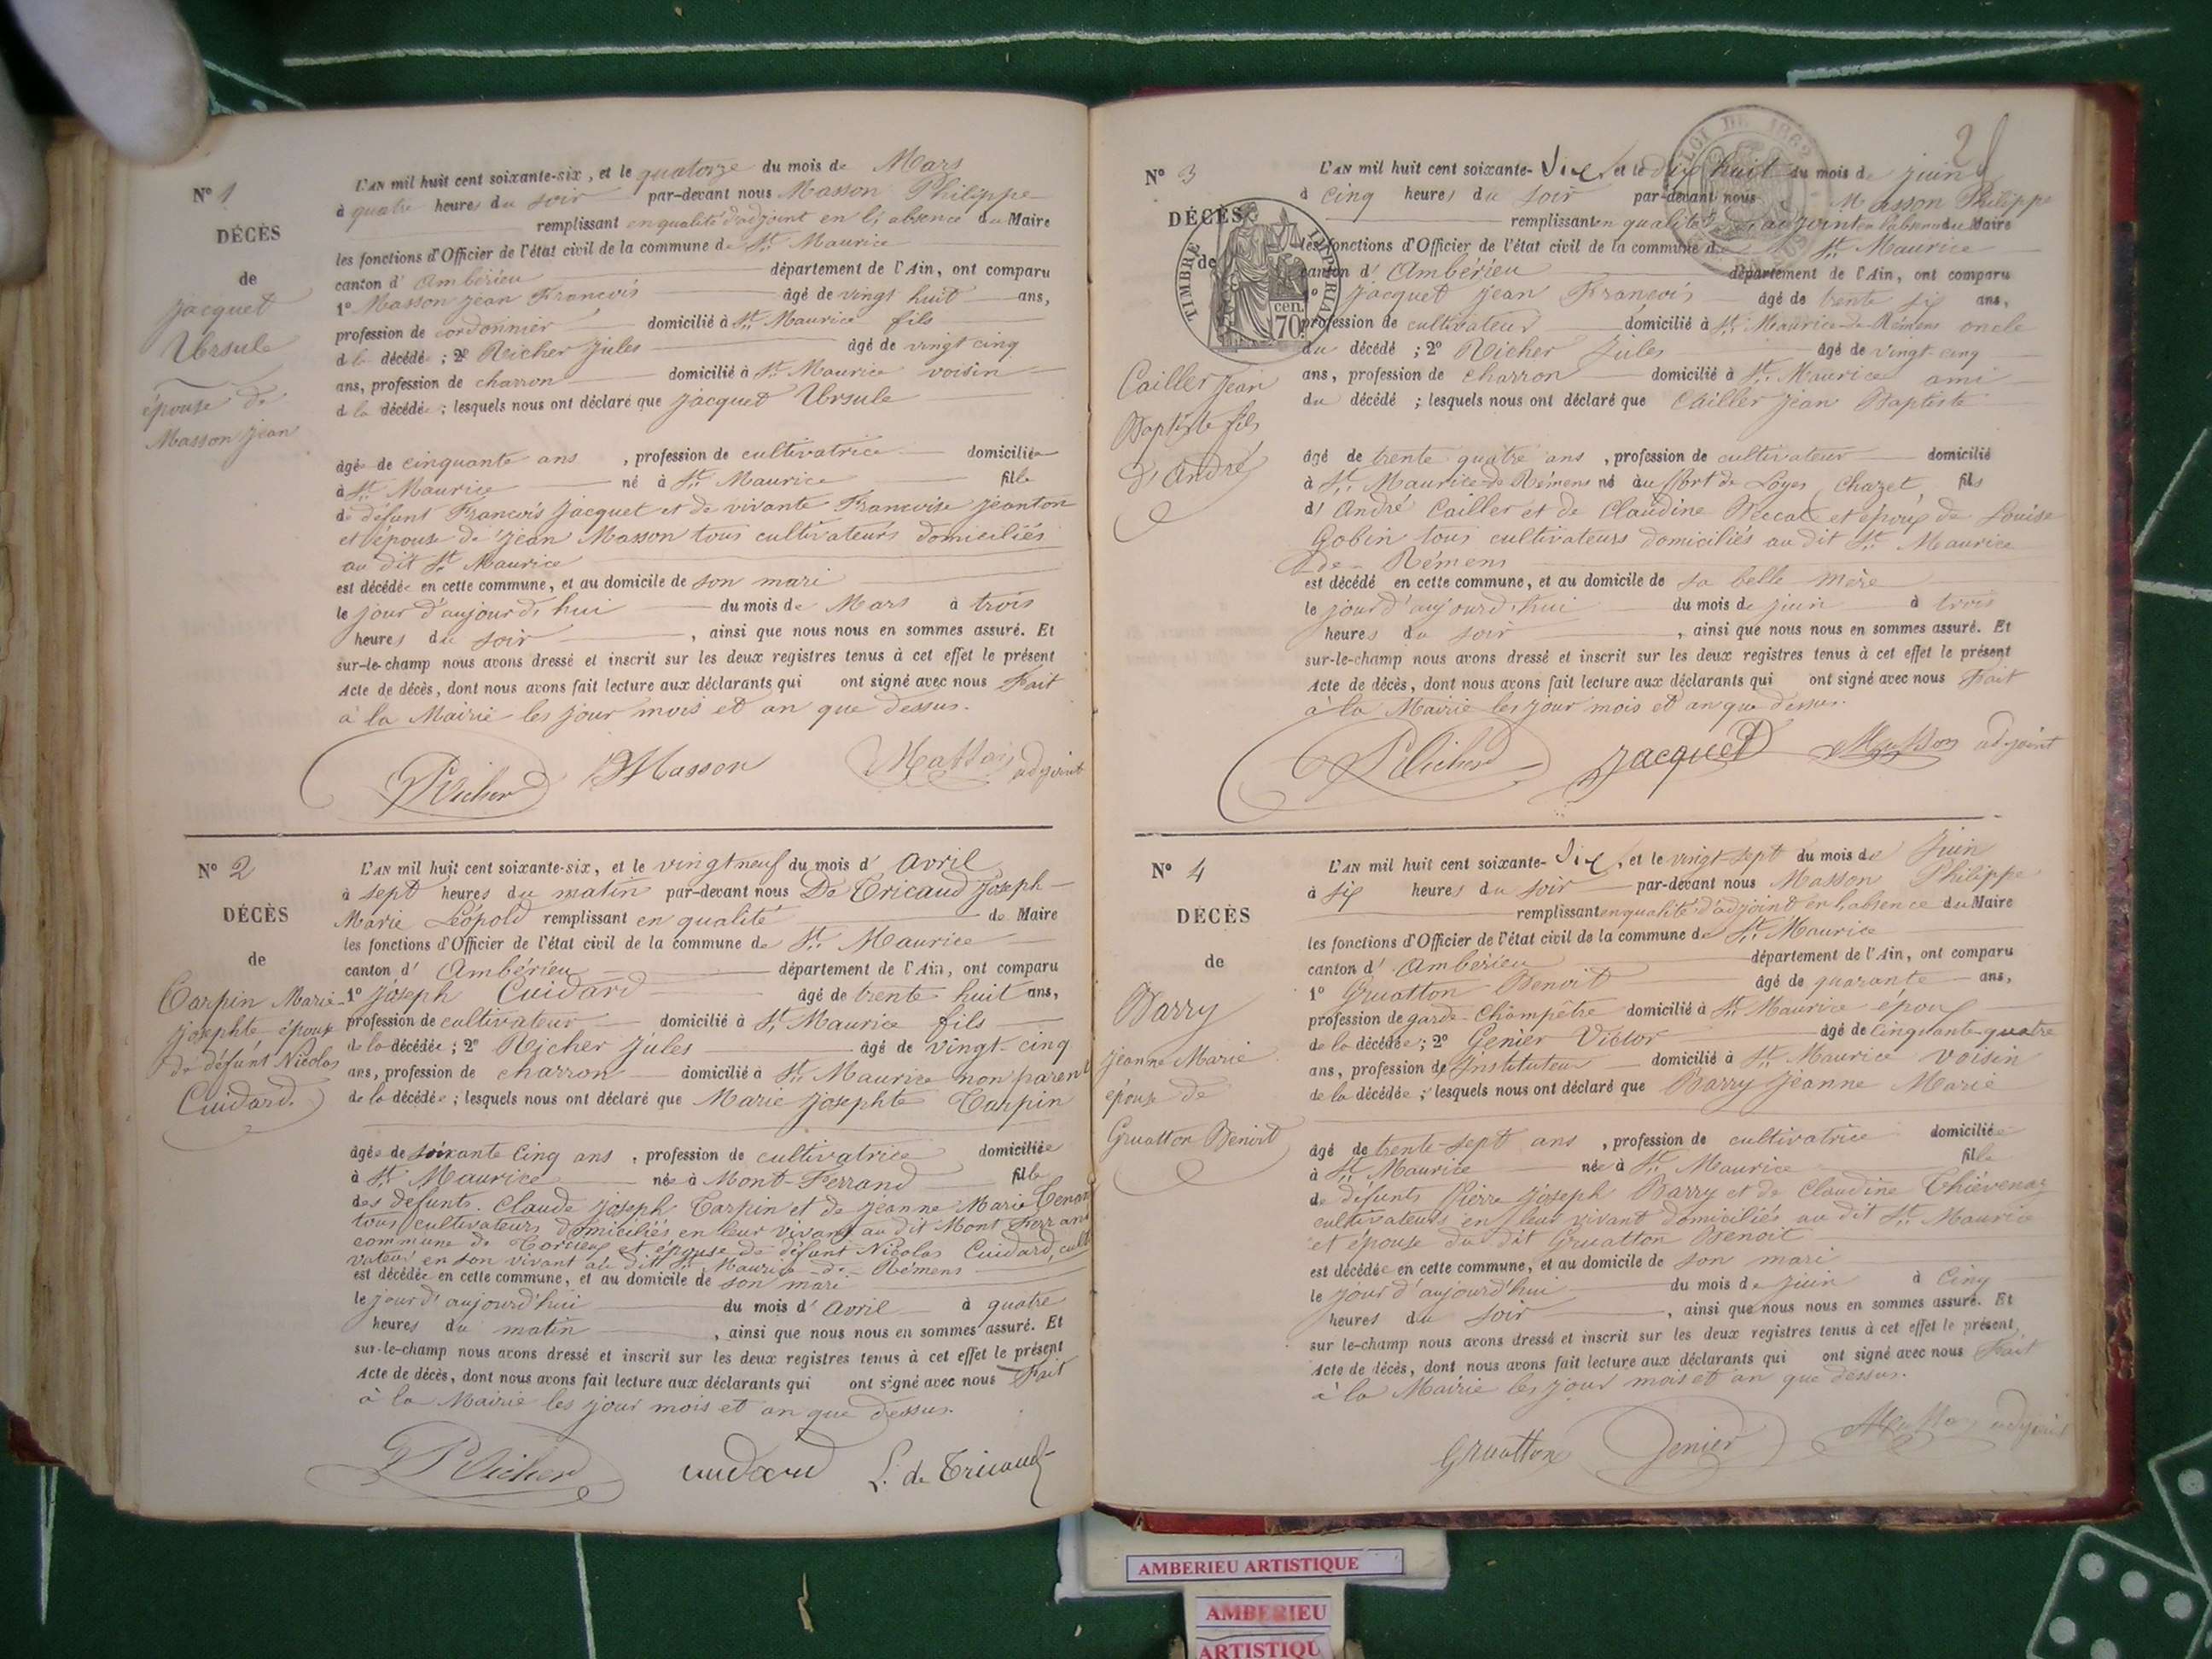 N° 1
DÉCÈS
de
Jacquet
Ursule
épouse de
Masson Jean
L'AN mil huit cent soixante-six, et le quatorze du mois de Mars
à quatre heures du soir par-devant nous Masson Philippe
remplissant en qualité d'adjoint en l'absence du Maire
les fonctions d'Officier de l'état civil de la commune de St. Maurice
canton d'Ambérieu département de l'Ain, ont comparu
1° Masson Jean François âgé de vingt huit ans,
profession de cordonnier domicilié à St. Maurice fils
d la décédé ; 2° Richer Jules âgé de vingt cinq
ans, profession de charron domicilié à St. Maurice voisin
d la décédée ; lesquels nous ont déclaré que Jacquet Ursule
âgée de cinquante ans , profession de cultivatrice domiciliée
à St. Maurice né à St. Maurice fille
de défunt François Jacquet et de vivante Françoise Jeanton
et épouse de Jean Masson tous cultivateurs domiciliés
au dit St. Maurice
est décédée en cette commune, et au domicile de son mari
le jour d'aujourd'hui du mois de Mars à trois
heures du soir , ainsi que nous nous en sommes assuré. Et
sur-le-champ nous avons dressé et inscrit sur les deux registres tenus à cet effet le présent
Acte de décès, dont nous avons fait lecture aux déclarants qui ont signé avec nous Fait
à la Mairie les jour mois et an que dessus.
Richer Masson Masson adjoint
N° 2
DÉCÈS
de
Carpin Marie
Josephte épouse
de défunt Nicolas
Cuidard.
L'AN mil huit cent soixante-six, et le vingt neuf du mois d'Avril
à sept heures du matin par-devant nous De Tricaud Joseph
Marie Léopold remplissant en qualité de Maire
les fonctions d'Officier de l'état civil de la commune de St. Maurice
canton d'Ambérieu département de l'Ain, ont comparu
1° Joseph Cuidard âgé de trente huit ans,
profession de cultivateur domicilié à St. Maurice fils
de la décédée ; 2° Richer Jules âgé de vingt-cinq
ans, profession de charron domicilié à St. Maurice non parent
de la décédée ; lesquels nous ont déclaré que Marie Josephte Carpin
âgée de soixante cinq ans , profession de cultivatrice domiciliée
à St. Maurice née à Mont-Ferrand fille
des défunts Claude Joseph Carpin et de Jeanne Marie
tous cultivateurs domiciliés en leur vivant au dit Mont Ferrand
commune de Torcieu et épouse de défunt Nicolas Cuidard, culti
vateur en son vivant au dit St. Maurice-de-Rémens
est décédée en cette commune, et au domicile de son mari
le jour d'aujourd'hui du mois d'Avril à quatre
heures du matin , ainsi que nous nous en sommes assuré. Et
sur-le-champ nous avons dressé et inscrit sur les deux registres tenus à cet effet le présent
Acte de décès, dont nous avons fait lecture aux déclarants qui ont signé avec nous Fait
à la Mairie les jour mois et an que dessus.
Richer cuidard L. de Tricaud
N° 3
DÉCÈS
de
TIMBRE IMPÉRIAL
70 cen.
LOI DE 1862
Cailler Jean
Baptiste fils
d'André
L'AN mil huit cent soixante-Six, et le dix huit du mois de juin
à cinq heures du soir par-devant nous Masson Philippe
remplissant en qualité d'adjoint en l'absence du Maire
les fonctions d'Officier de l'état civil de la commune de St. Maurice
canton d'Ambérieu département de l'Ain, ont comparu
1° Jacquet Jean François âgé de trente six ans,
profession de cultivateur domicilié à St. Maurice-de-Rémens oncle
du décédé ; 2° Richer Jules âgé de vingt-cinq
ans, profession de charron domicilié à St. Maurice ami
du décédé ; lesquels nous ont déclaré que Cailler Jean Baptiste
âgé de trente quatre ans , profession de cultivateur domicilié
à St. Maurice-de-Rémens né au de Loyes, Chazet, fils
d'André Cailler et de Claudine et époux de Louise
Gobin tous cultivateurs domiciliés au dit St. Maurice
de-Rémens
est décédé en cette commune, et au domicile de sa belle mère
le jour d'aujourd'hui du mois de juin à trois
heures du soir , ainsi que nous nous en sommes assuré. Et
sur-le-champ nous avons dressé et inscrit sur les deux registres tenus à cet effet le présent
Acte de décès, dont nous avons fait lecture aux déclarants qui ont signé avec nous Fait
à la Mairie les jour mois et an que dessus.
Richer Jacquet Masson adjoint
N° 4
DÉCÈS
de
Barry
Jeanne Marie
épouse de
Gruatton Benoit
L'AN mil huit cent soixante-Six, et le vingt-sept du mois de Juin
à six heures du soir par-devant nous Masson Philippe
remplissant en qualité d'adjoint en l'absence du Maire
les fonctions d'Officier de l'état civil de la commune de St. Maurice
canton d'Ambérieu département de l'Ain, ont comparu
1° Gruatton Benoit âgé de quarante ans,
profession de garde-Champêtre domicilié à St. Maurice époux
de la décédée ; 2° Genier Victor âgé de Cinquante-quatre
ans, profession d'Instituteur domicilié à St. Maurice voisin
de la décédée ; lesquels nous ont déclaré que Barry Jeanne Marie
âgé de trente-sept ans , profession de cultivatrice domiciliée
à St. Maurice née à St. Maurice fille
de défunts Pierre Joseph Barry et de Claudine Thiévenaz
cultivateurs en leur vivant domiciliés au dit St. Maurice
et épouse du dit Gruatton Benoit
est décédée en cette commune, et au domicile de son mari
le jour d'aujourd'hui du mois de juin à Cinq
heures du soir , ainsi que nous nous en sommes assuré. Et
sur le-champ nous avons dressé et inscrit sur les deux registres tenus à cet effet le présent
Acte de décès, dont nous avons fait lecture aux déclarants qui ont signé avec nous Fait
à la Mairie les jour mois et an que dessus.
Gruatton Genier Masson adjoint
AMBERIEU ARTISTIQUE
AMBERIEU
ARTISTIQU